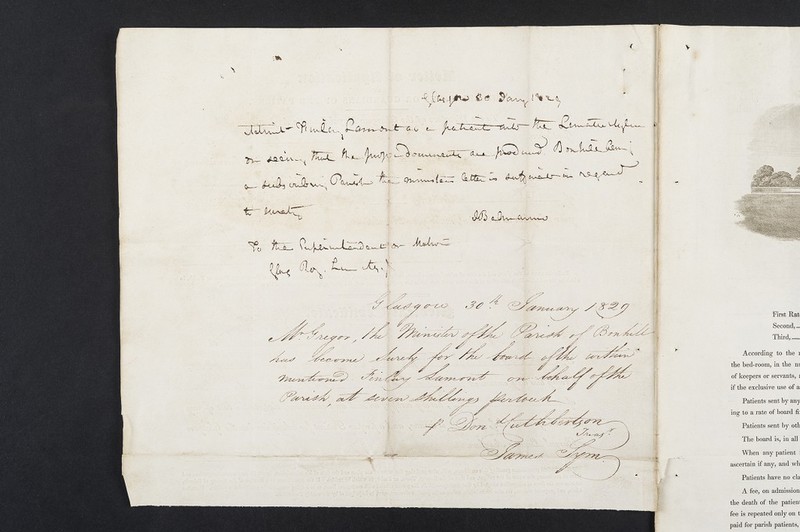 Glasgow 30 Jany 1829
Admit Finlay Lamont as a patient into the Lunatic Asylum
on seeing that the proper documents are produced Bonhill being
a subscribing Parish the ministers letter is sufficient in regard
to surety
To the Superintendent or Matron
Glas Roy. Lun Asy.
Glasgow 30th January 1829
Mr Gregor, the Minister of the Parish of Bonhill
has become surety for the board of the within
mentioned Finlay Lamont on behalf of the
Parish, at seven shillings per week
pr Don Cuthbertson
Treasr
James Sym
First Rat
Second,
Third,
According to the
the bed-room, in the
of keepers or servants,
if the exclusive use of a
Patients sent by any
ing to a rate of board fo
Patients sent by oth
The board is, in all
When any patient
ascertain if any, and wh
Patients have no cla
A fee, on admission
the death of the patient
fee is repeated only on t
paid for parish patients,